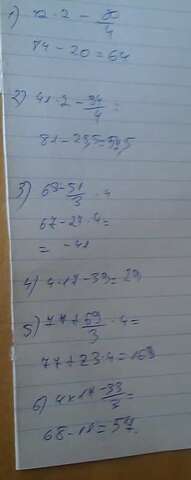 1) 42·2 - 80/4
84-20=64
2) 41·2 - 94/4 =
81-23,5=58,5
3) 68-51/3 · 4
67-27·4=
= -41
4) 4·17-33=29
5) 77+59/3 · 4=
77+23·4=169
6) 4x17-33/3=
68-11=57